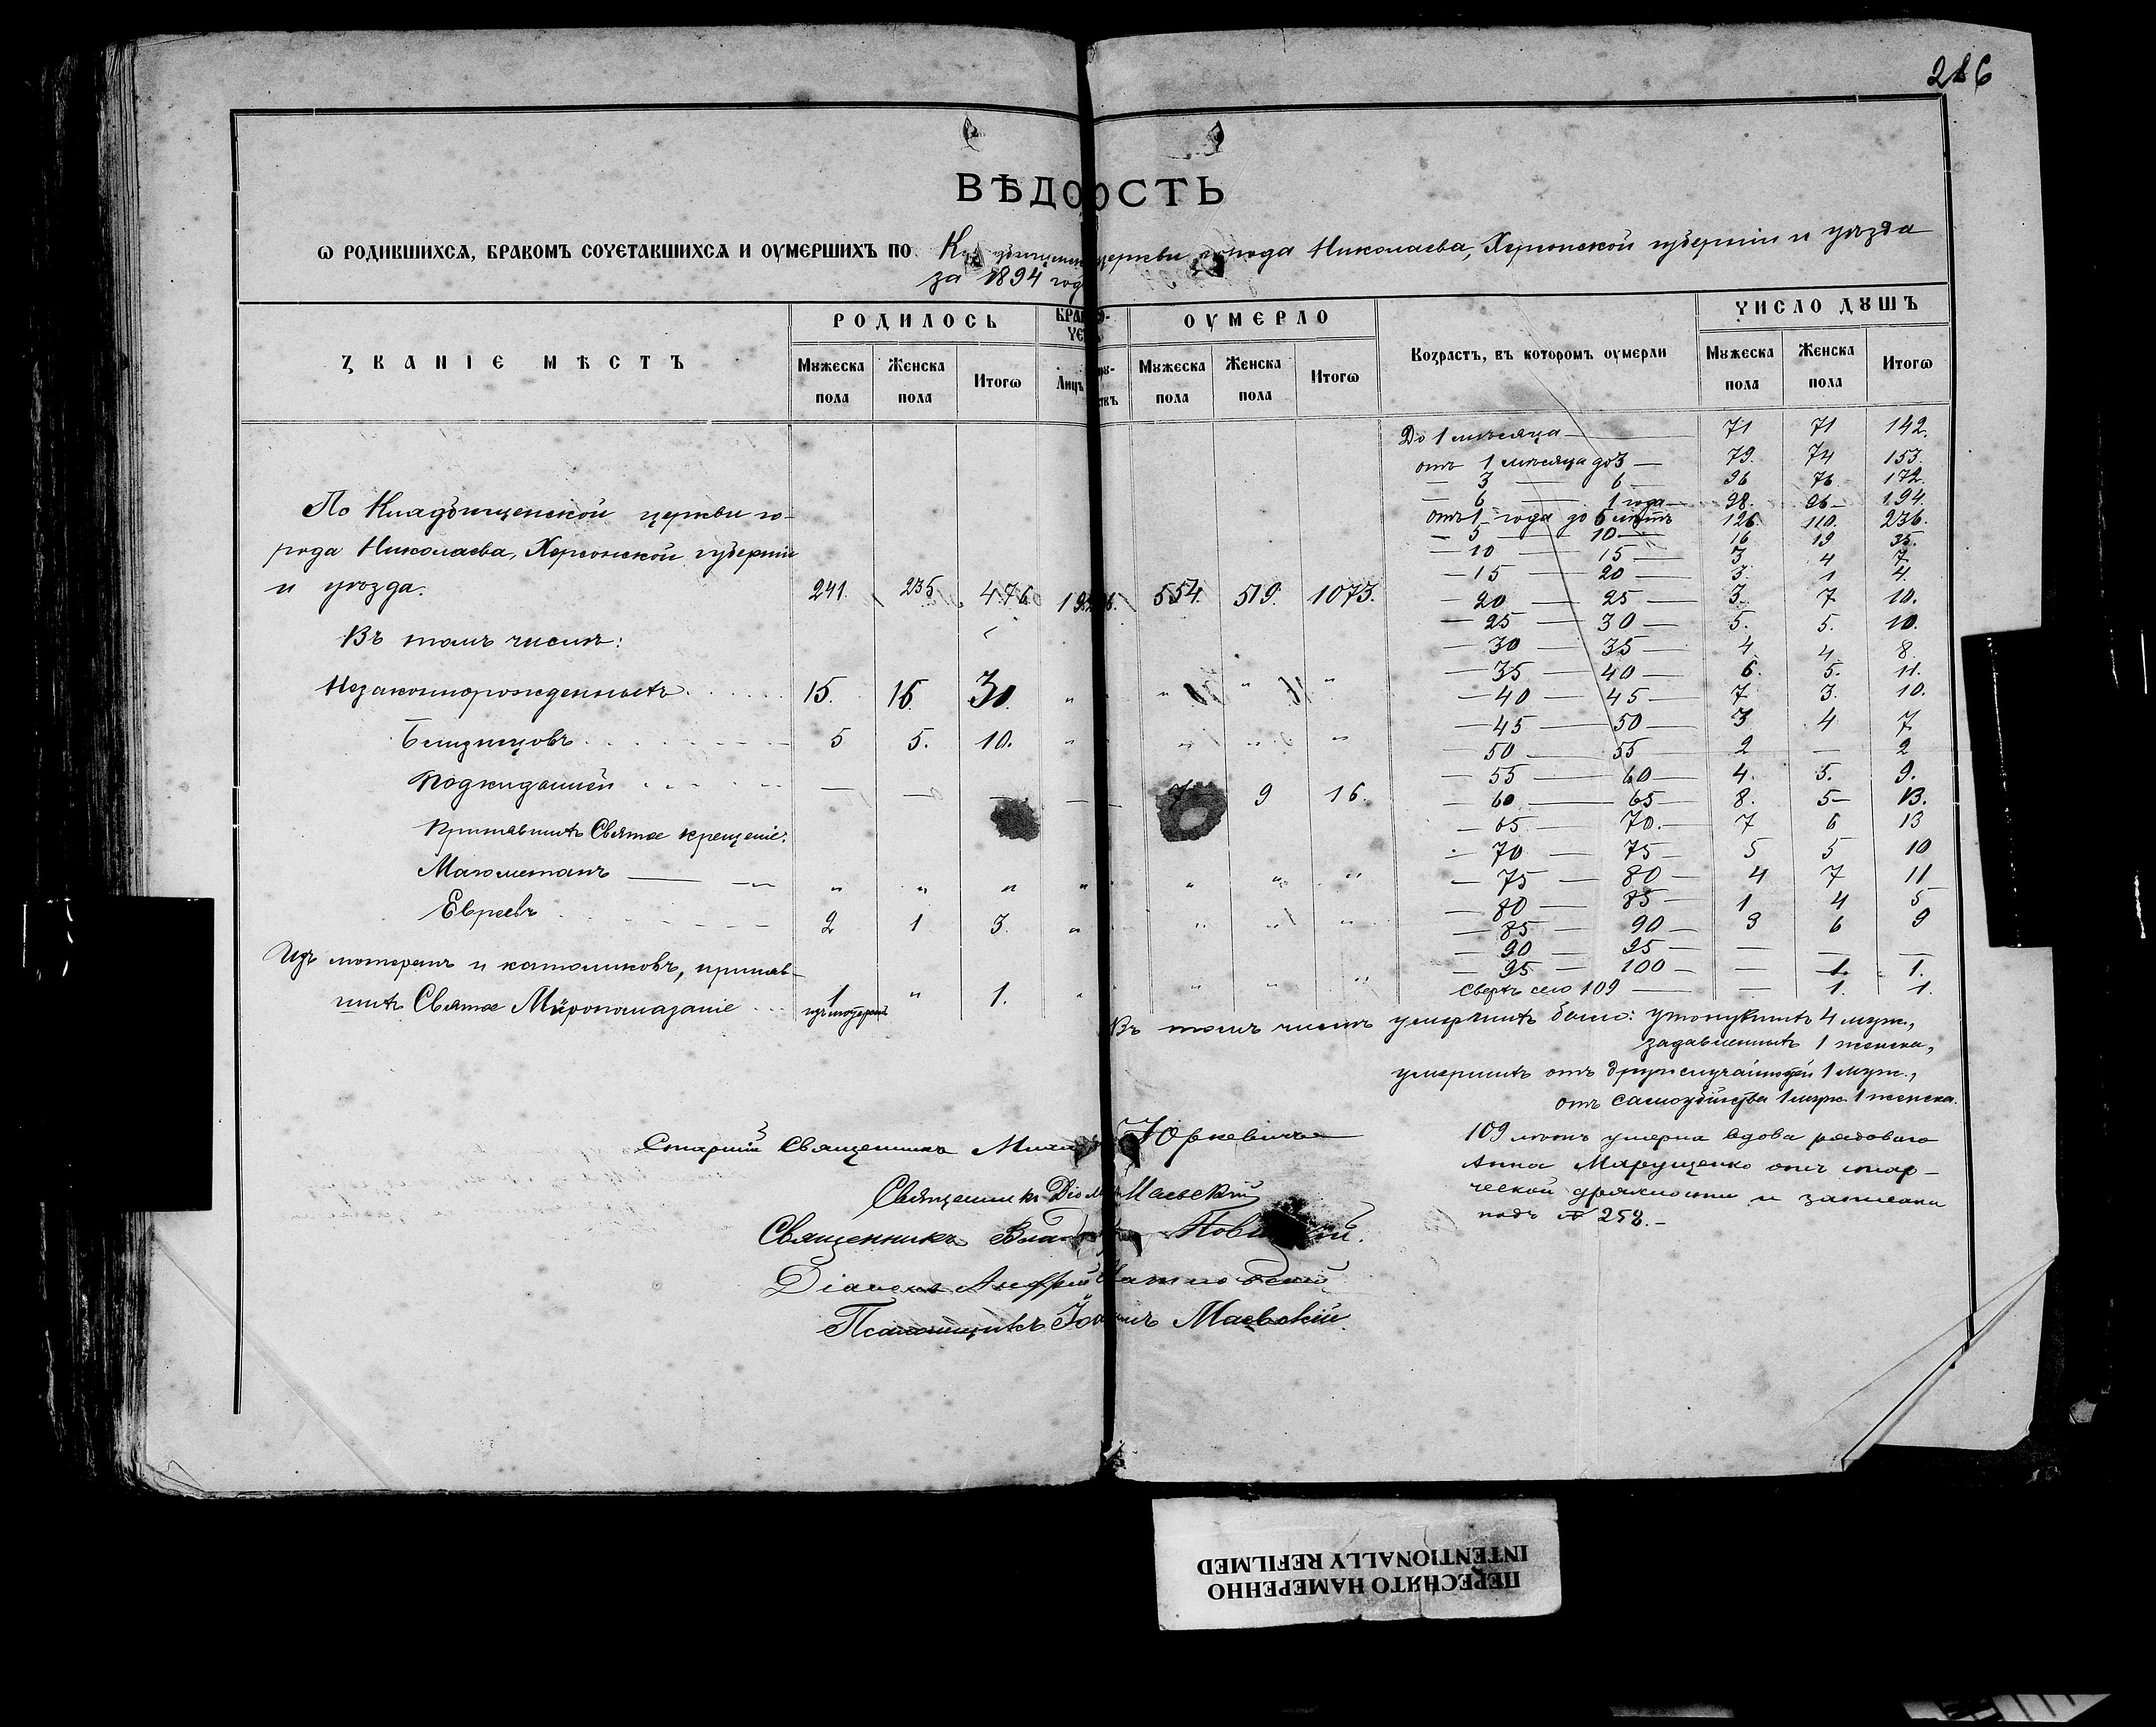 286
ВѢДО ОСТЬ
Ѡ РОДИВШИХСѦ, БРАКОМЪ СОЧЕТАВШИХСѦ И ОУМЕРШИХЪ ПО церкви города Николаева, Херсонской губерніи и уѣзда
за 1894 год
ЗВАНІЕ МѢСТЪ
РОДИЛОСЬ
ОУМЕРЛО
Возрастъ, въ которомъ оумерли
ЧИСЛО ДУШЪ
Мужеска пола Женска пола Итогѡ Лицъ Мужеска пола Женска пола Итогѡ Мужеска пола Женска пола Итогѡ
До 1 мѣсяца — 71 71 142.
отъ 1 мѣсяца до 3 — 79. 74 153.
— 3 — 6 — 96 76. 172.
— 6 — 1 года — 98. 96 — 194.
отъ 1 года до 5 лѣтъ 126. 110. 236.
— 5 — 10 — 16 19 35.
— 10 — 15 — 3 4 7.
— 15 — 20 — 3. 1 4.
— 20 — 25 — 3. 7 10.
— 25 — 30 — 5. 5. 10.
— 30 — 35 — 4 4 8.
— 35 — 40 — 6. 5. 11.
— 40 — 45 — 7 3. 10.
— 45 — 50 — 3 4 7.
— 50 — 55 — 2 — 2
— 55 — 60 — 4. 5. 9.
— 60 — 65 — 8. 5 — 13.
— 65 — 70. — 7 6 13
— 70 — 75 — 5 5 10
— 75 — 80 — 4 7 11
— 80 — 85 — 1 4 5
— 85 — 90 — 3 6 9
— 90 — 95 — — — —
— 95 — 100 — — 1. 1.
Сверхъ сего 109 — — 1. 1.
По Кладбищенской церкви го-
рода Николаева, Херсонской губерніи
и уѣзда. 241. 235 476 554. 519. 1073.
Въ томъ числѣ:
Незаконнорожденныхъ 15. 15. 30. " " " "
Близнецовъ 5 5. 10. " " " "
Подкидышей — — — — 9 16.
Принявшихъ Святое крещеніе:
Магометанъ — " " " " " " "
Евреевъ 2 1 3. " " " "
Изъ лютеранъ и католиковъ, приняв-
шихъ Святое Мѵропомазаніе 1 " 1. " " " "
изъ лютеранъ
Въ томъ числѣ умершихъ было: утонувшихъ 4 муж.,
задавленныхъ 1 женска,
умершихъ отъ 1 муж.,
отъ самоубійства 1 муж. 1 женска.
109 лѣтъ умерла вдова рядового
Анна Марущенко отъ стар-
ческой дряхлости и записана
подъ № 258. —
Старшій Священникъ Юркевичъ
Священникъ Маевскій
Священникъ
Діаконъ Андрей
Псаломщикъ Іоаннъ Маевскій.
ПЕРЕСНЯТО НАМЕРЕННО
INTENTIONALLY REFILMED